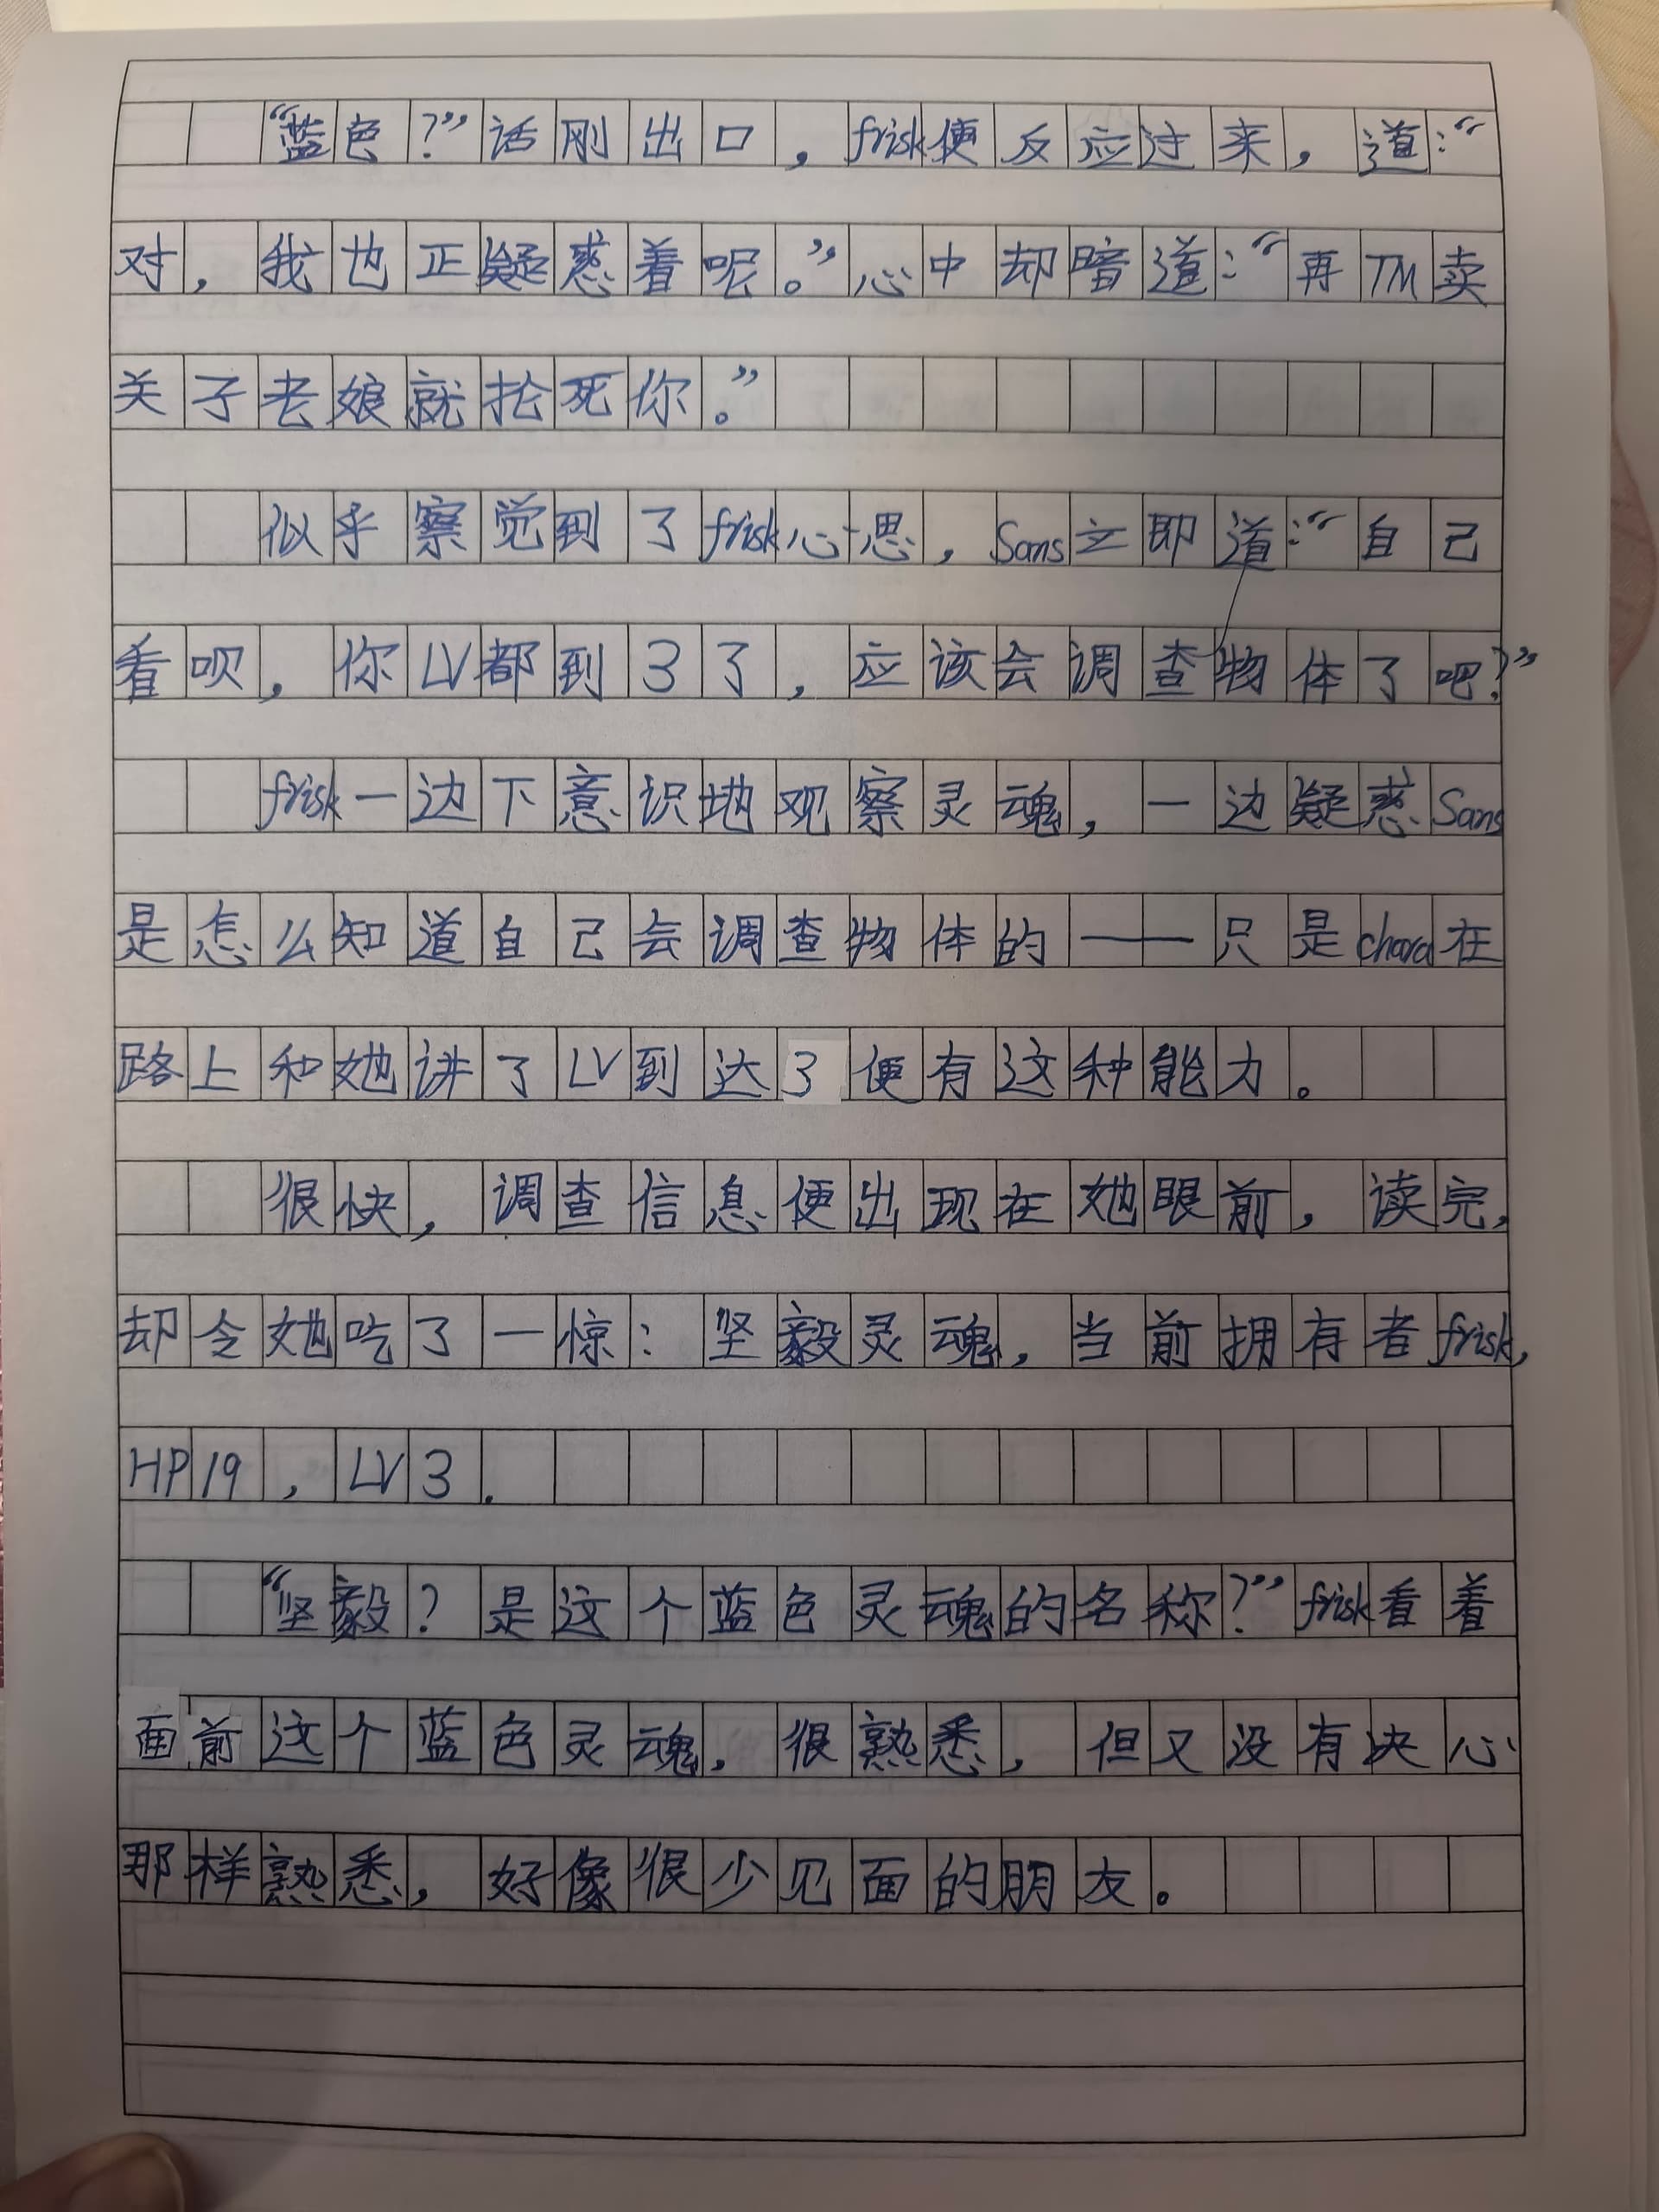 “蓝色?”话刚出口，frisk便反应过来，道:“
对，我也正疑惑着呢。”心中却暗道:“再TM卖
关子老娘就抡死你。”
似乎察觉到了frisk心思，Sans立即道:“自己
看呗，你LV都到3了，应该会调查物体了吧?”
frisk一边下意识地观察灵魂，一边疑惑Sans
是怎么知道自己会调查物体的——只是chara在
路上和她讲了LV到达3便有这种能力。
很快，调查信息便出现在她眼前，读完，
却令她吃了一惊：坚毅灵魂，当前拥有者frisk，
HP19，LV3.
“坚毅?是这个蓝色灵魂的名称?”frisk看着
面前这个蓝色灵魂，很熟悉，但又没有决心
那样熟悉，好像很少见面的朋友。